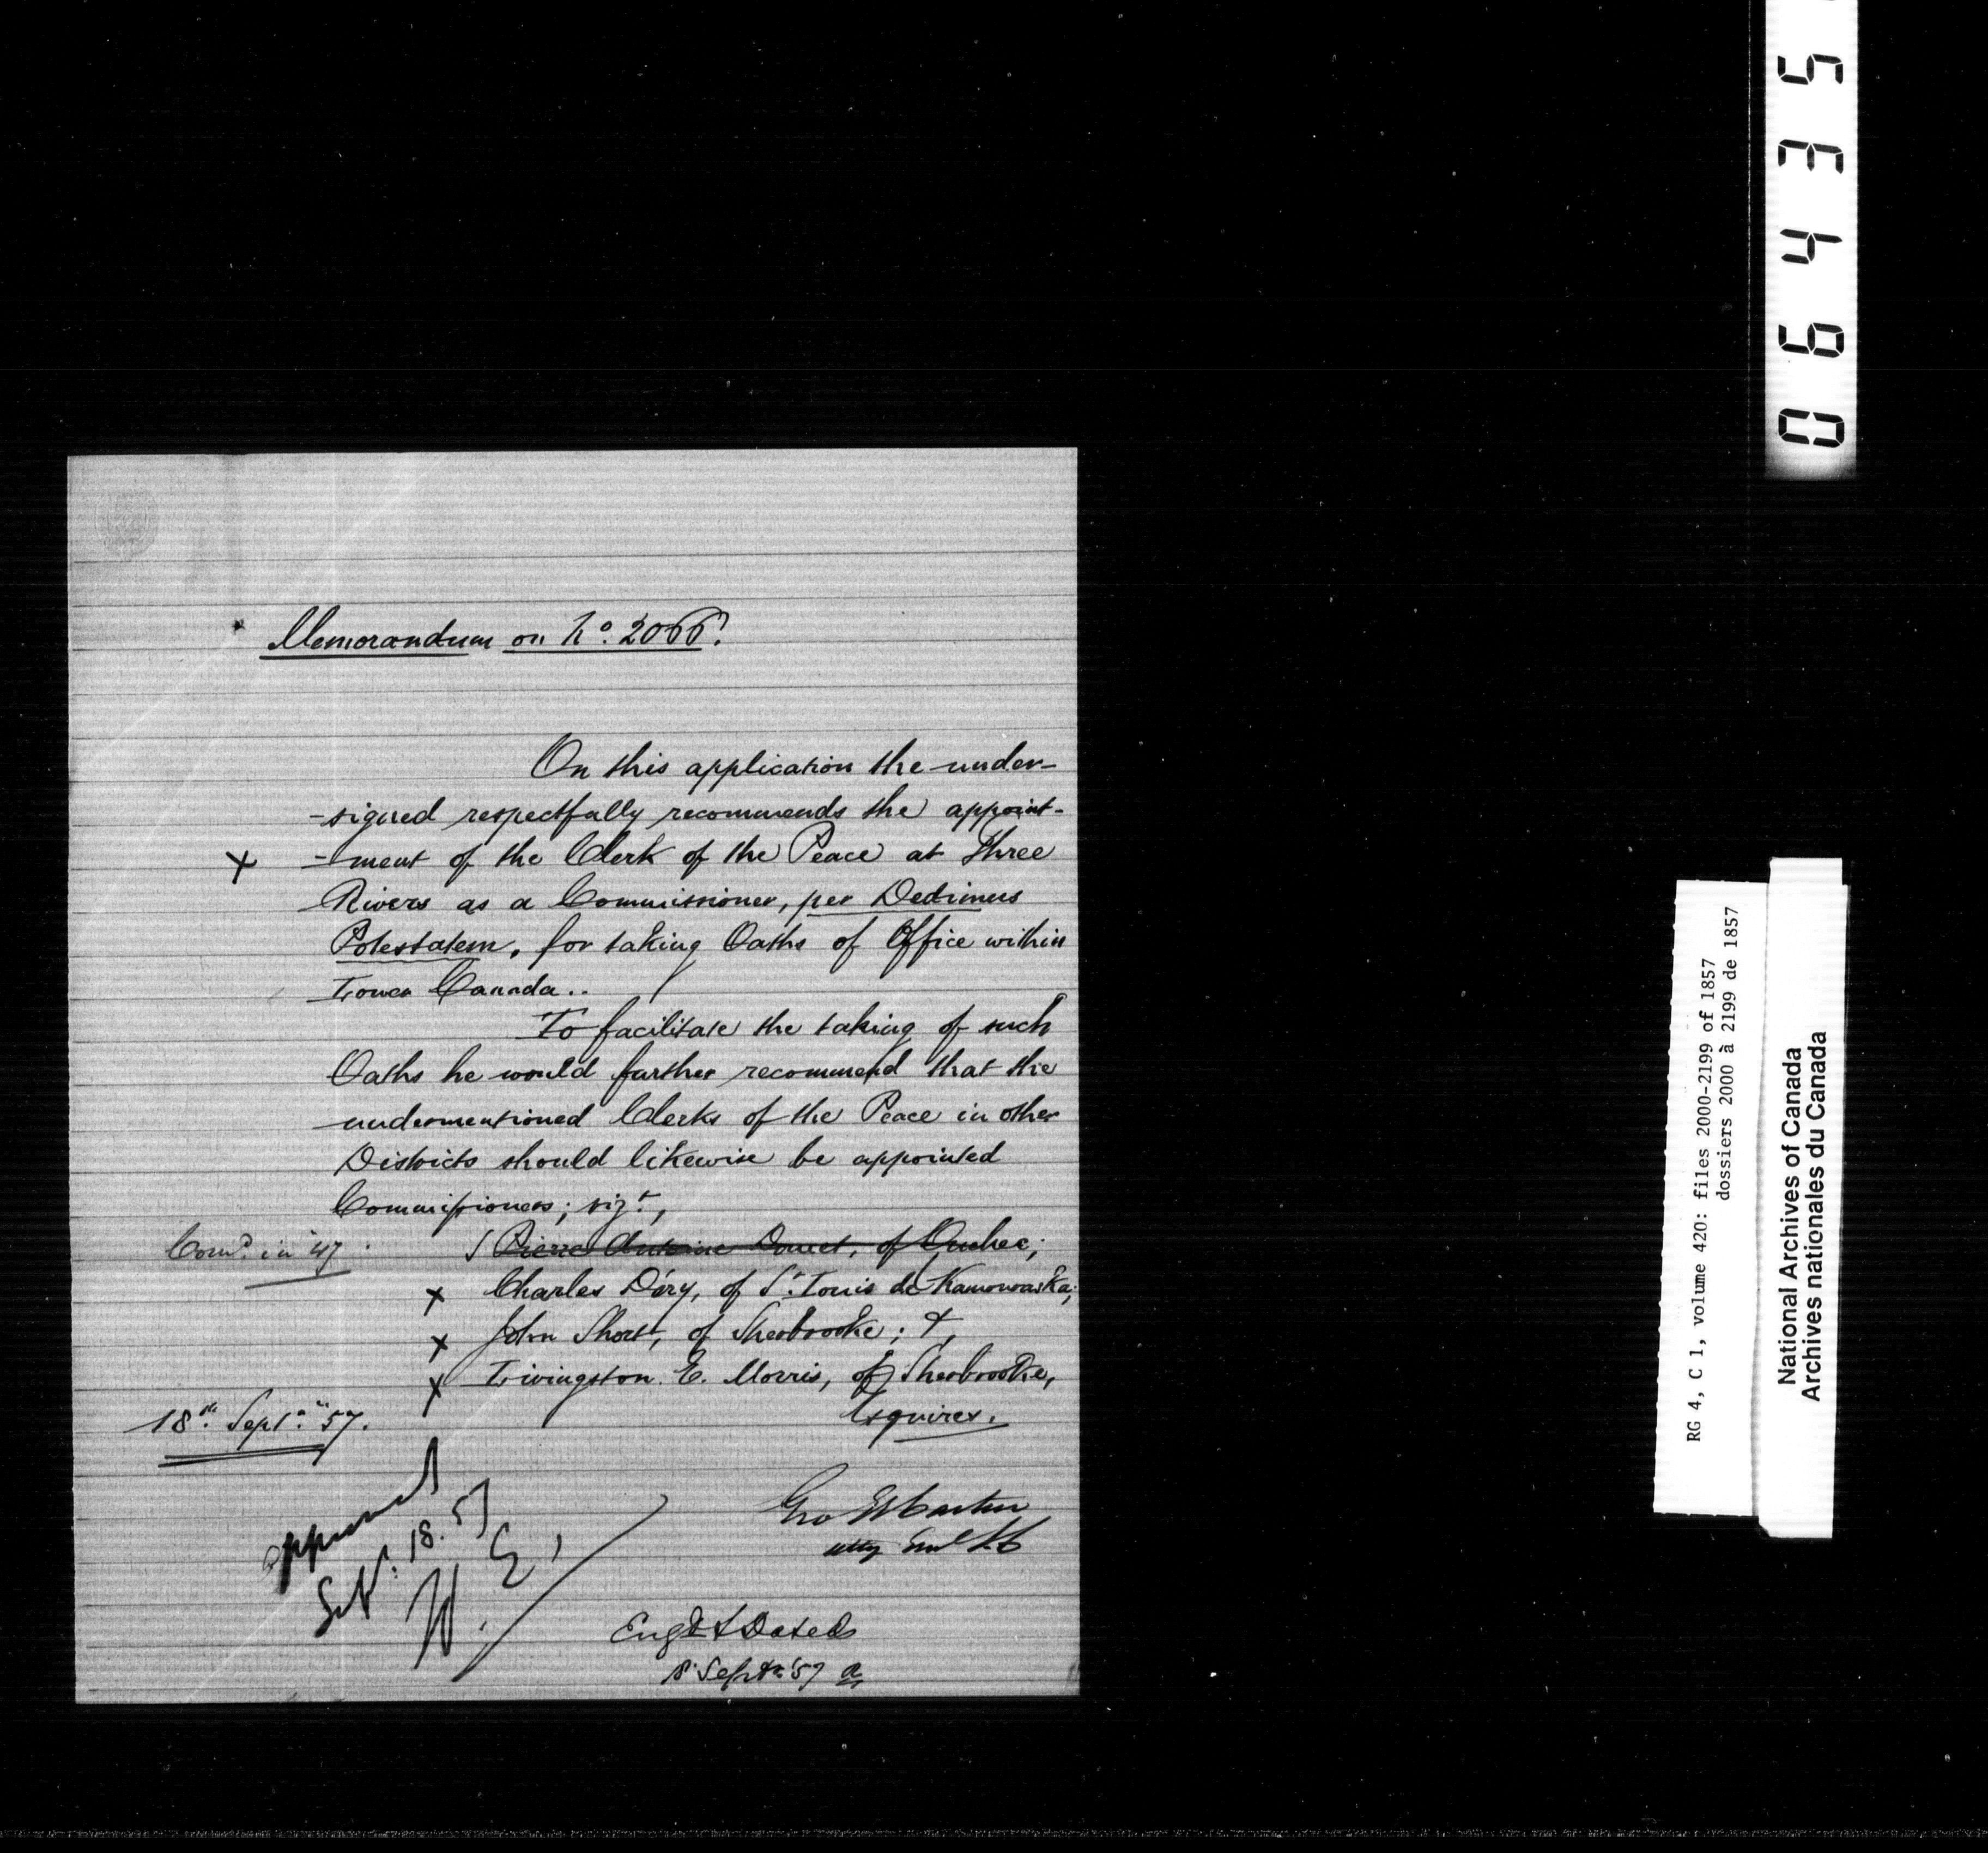 Memorandum on No. 2066.
On this application the under-
-signed respectfully recommends the appoint-
x -ment of the Clerk of the Peace at Three
Rivers as a Commissioner, per Dedimus
Potestatem, for taking Oaths of Office within
Lower Canada..
To facilitate the taking of such
Oaths he would further recommend that the
undermentioned Clerks of the Peace in other
Districts should likewise be appointed
Commissioners; vizt,
Comd. in '47. Pierre Antoine Doucet, of Quebec;
x Charles Déry, of St. Louis de Kamouraska;
x John Short, of Sherbrooke; &,
x Livingston E. Morris, of Sherbrooke,
Esquires.
18th Sept. "57.
Geo Et Cartier
Atty Genl L.C
approved
Sept. 18. 57
W. E.
Engd & Dated
18 Septr '57
06435
RG 4, C 1, volume 420: files 2000-2199 of 1857
dossiers 2000 à 2199 de 1857
National Archives of Canada
Archives nationales du Canada